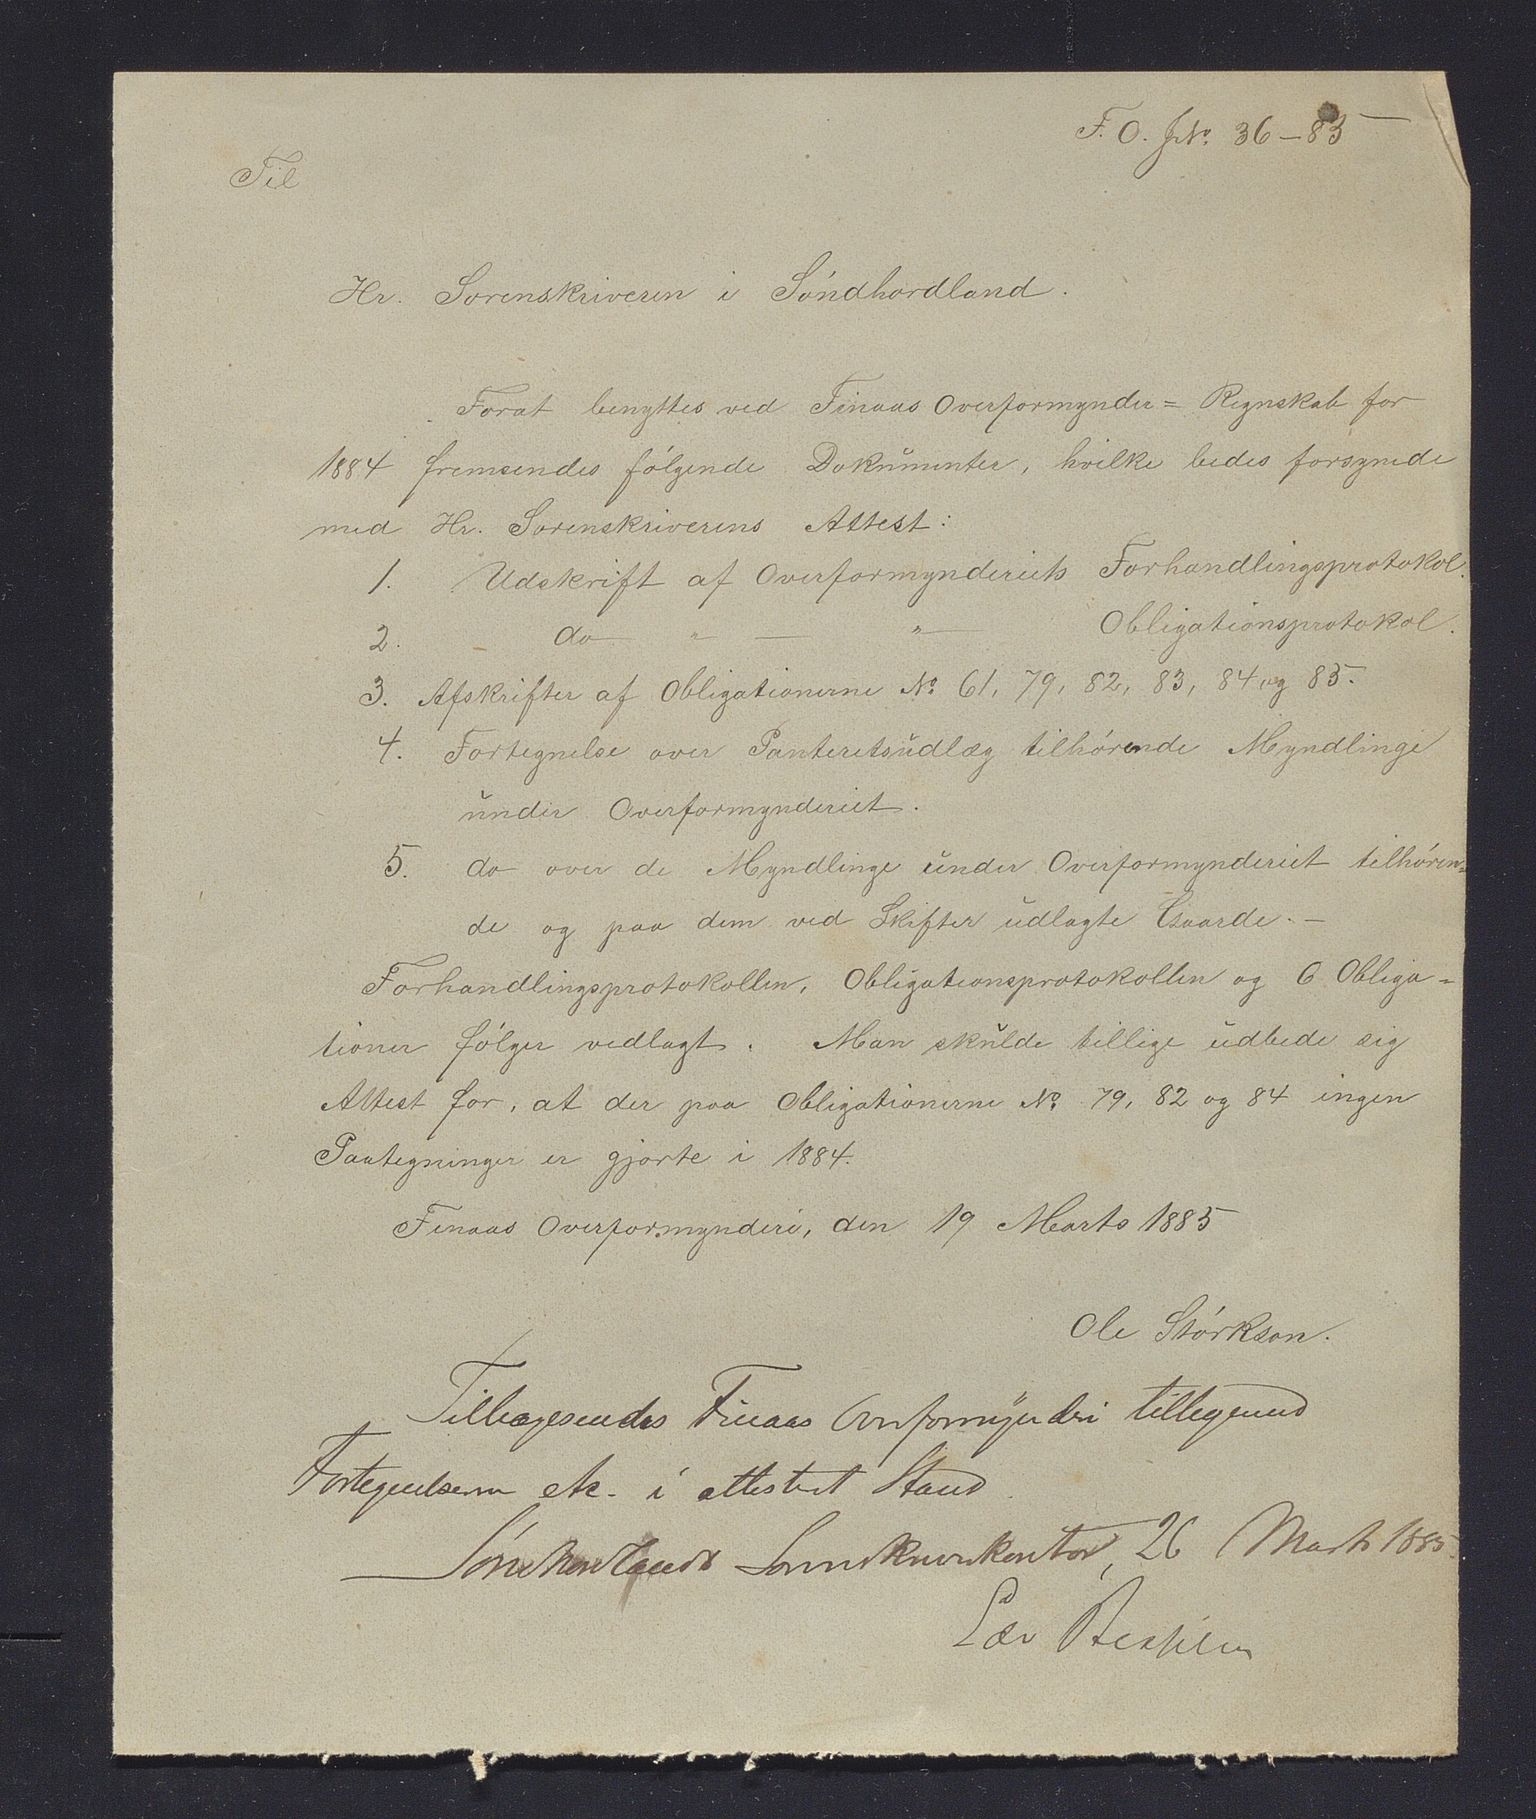 F. O. JNo. 36–85
Til
Hr. Sorenskriveren i Söndhordland.
Forat benyttes ved Finaas Overformynder= Regnskab for
1884 fremsendes følgende Dokumenter, hvilke bedes forsynede
med Hr. Sorenskriverens Attest:
1. Udskrift af Overformynderiets Forhandlingsprotokol.
2. do — " — " — Obligationsprotokol.
3. Afskrifter af Obligationerne No. 61, 79, 82, 83, 84 og 85.
4. Fortegnelse over Panteretsudlæg tilhørende Myndlinge
under Overformynderiet.
5. do over de Myndlinge under Overformynderiet tilhøren=
de og paa dem ved Skifter udlagte Gaarde. –
Forhandlingsprotokollen, Obligationsprotokollen og 6 Obliga=
tioner følger vedlagt. Man skulde tillige udbede sig
Attest for, at der paa Obligationerne No. 79, 82 og 84 ingen
Paategninger er gjorte i 1884.
Finaas Overformynderi, den 19 Marts 1885
Ole Størkson.
Tilbagesendes Finaas Overformynderi tilligemed
Fortegnelserne etc. i attesteret Stand
Søndhordlands Sorenskriverkontor, 26 Marts 1885.